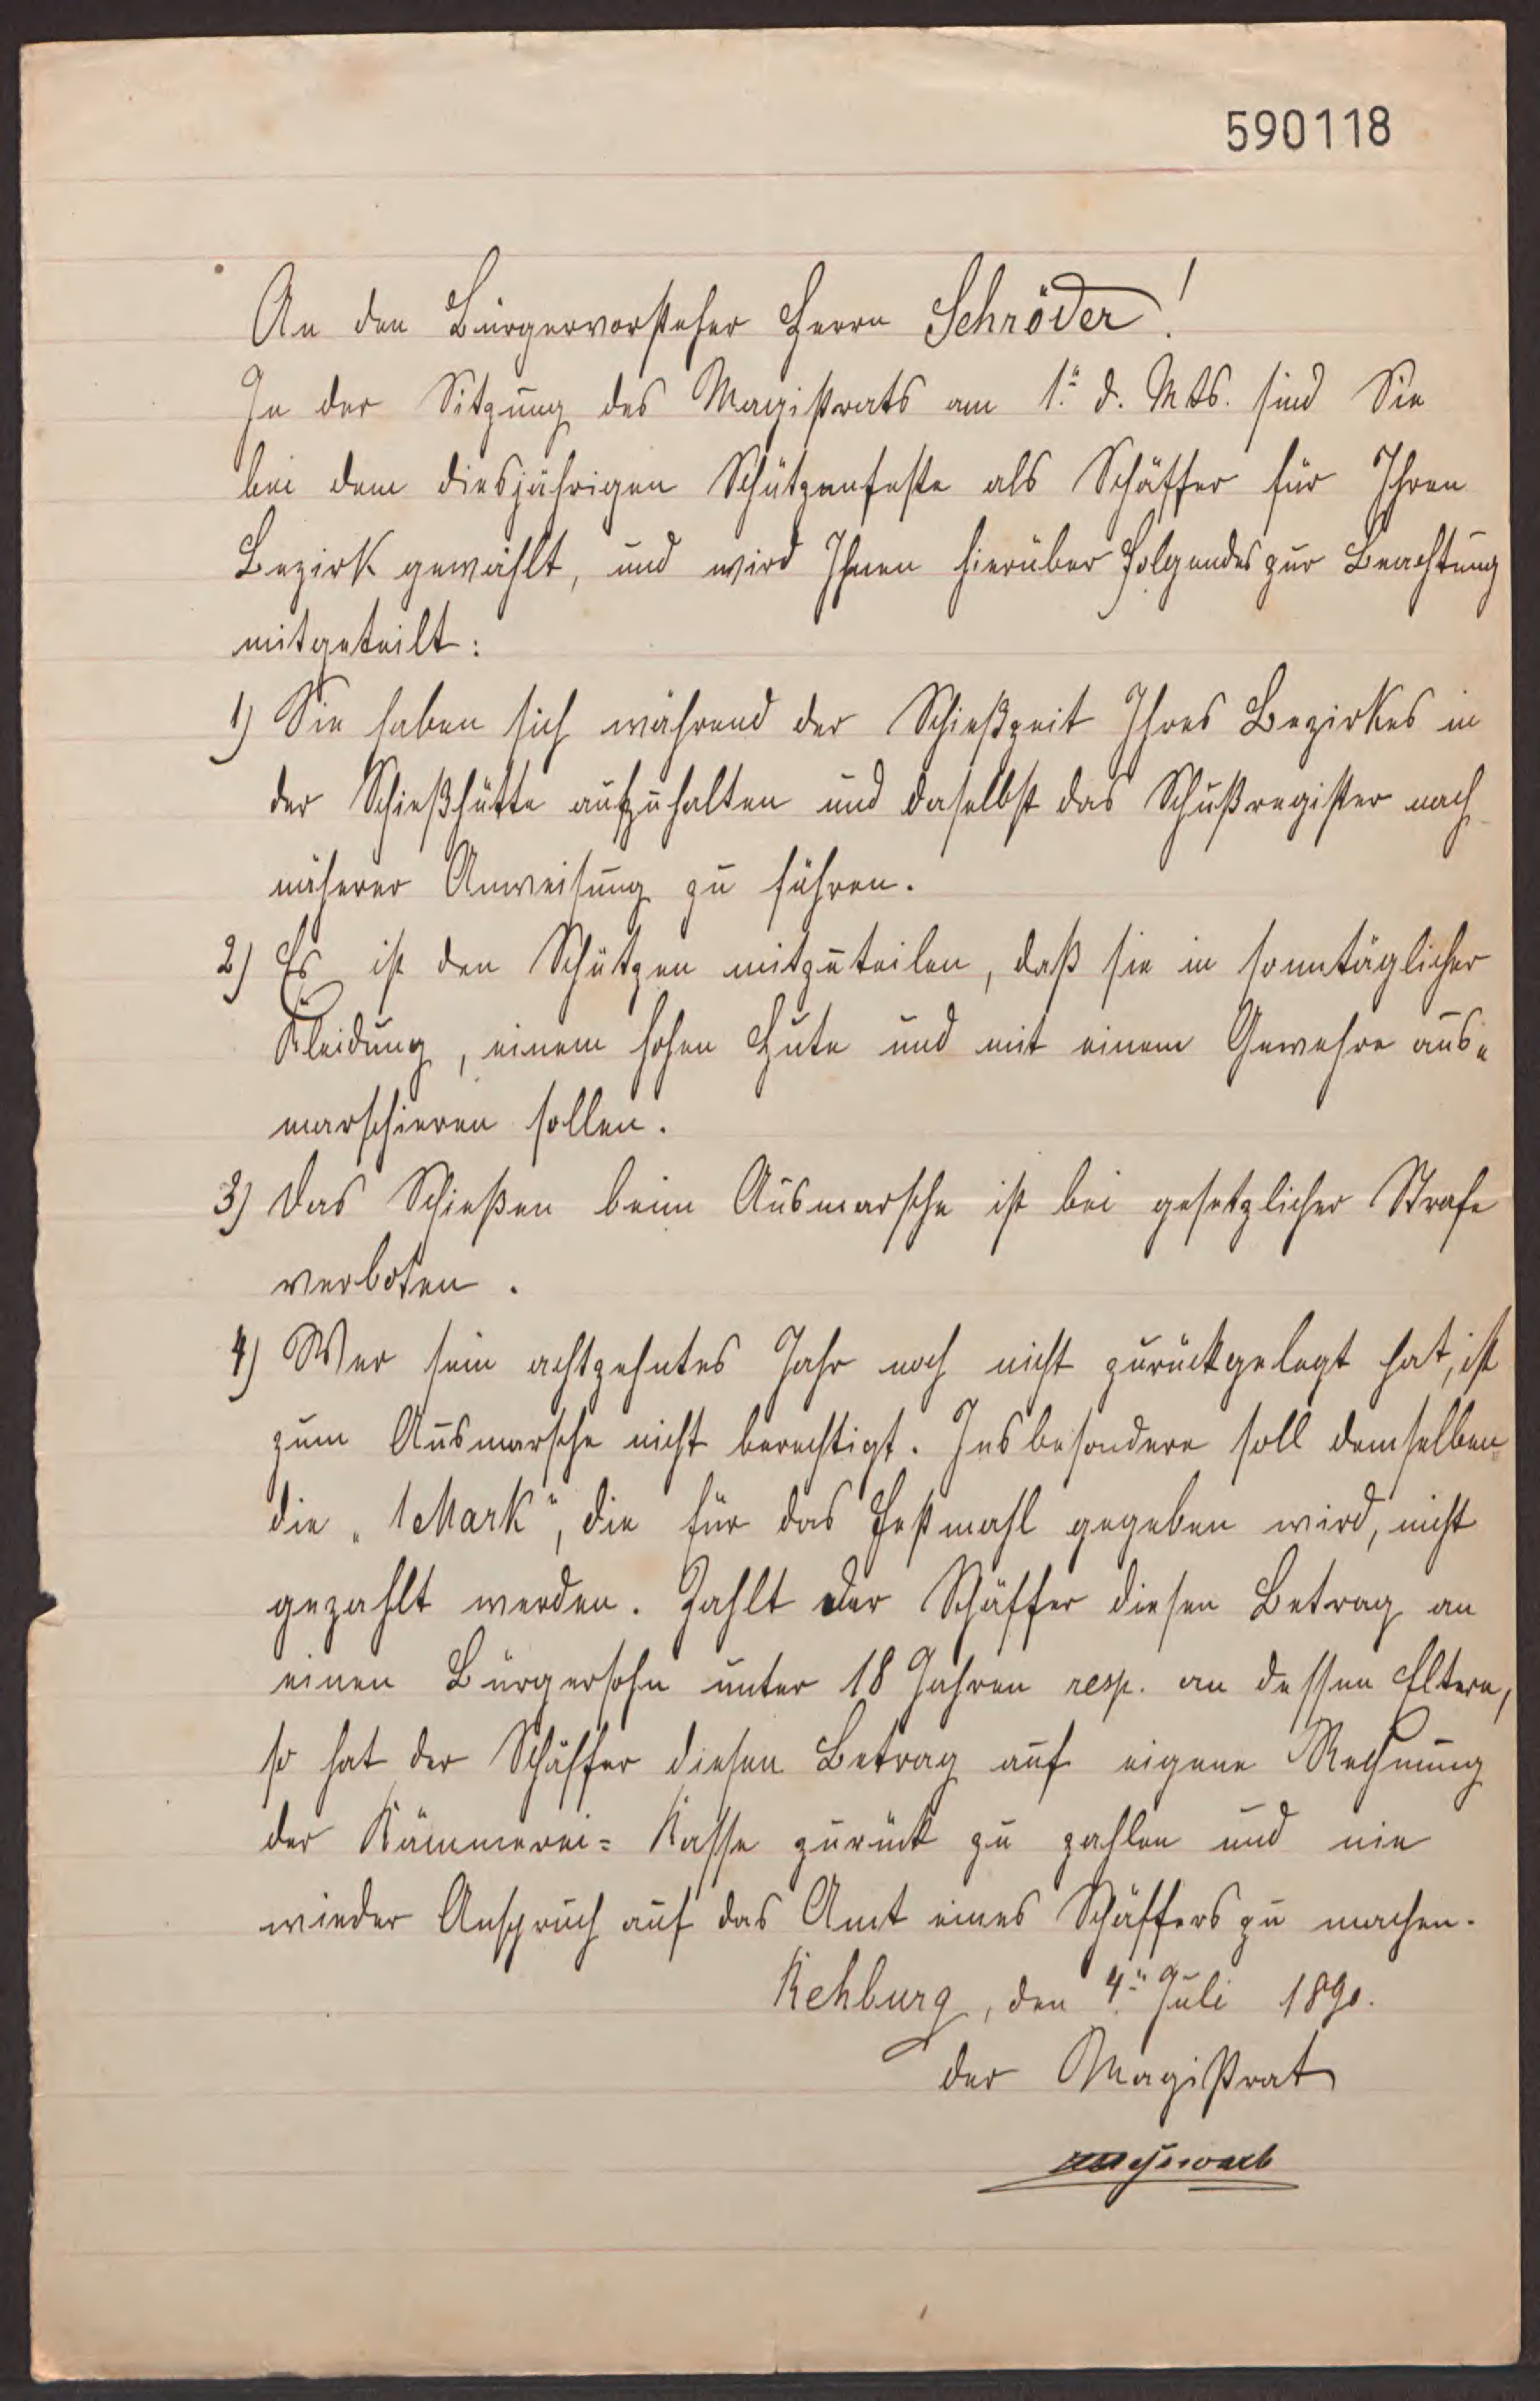 590118
An den Bürgervorsteher Herrn Schröder!
In der Sitzung des Magistrats am 1. d. Mts. sind Sie
bei dem diesjährigen Schützenfeste als Schäffer für Ihren
Bezirk gewählt, und wird Ihnen hierüber Folgendes zur Beachtung
mitgeteilt:
1) Sie haben sich während der Schießzeit Ihres Bezirkes in
der Schießhütte aufzuhalten und daselbst das Schußregister nach
näherer Anweisung zu führen.
2) Es ist den Schützen mitzuteilen, daß sie in sonntäglicher
Kleidung, einem hohen Hute und mit einem Gewehre aus-
marschieren sollen.
3) Das Schießen beim Ausmarsche ist bei gesetzlicher Strafe
verboten.
4) Wer sein achtzehntes Jahr noch nicht zurückgelegt hat, ist
zum Ausmarsche nicht berechtigt. Insbesondere soll demselben
die „1 Mark“, die für das Festmahl gegeben wird, nicht
gezahlt werden. Zahlt der Schäffer diesen Betrag an
einen Bürgersohn unter 18 Jahren resp. an dessen Eltern,
so hat der Schäffer diesen Betrag auf eigene Rechnung
der Kämmerei=Kasse zurück zu zahlen und nie
wieder Anspruch auf das Amt eines Schäffers zu machen.
Rehburg, den 4. Juli 1890.
der Magistrat